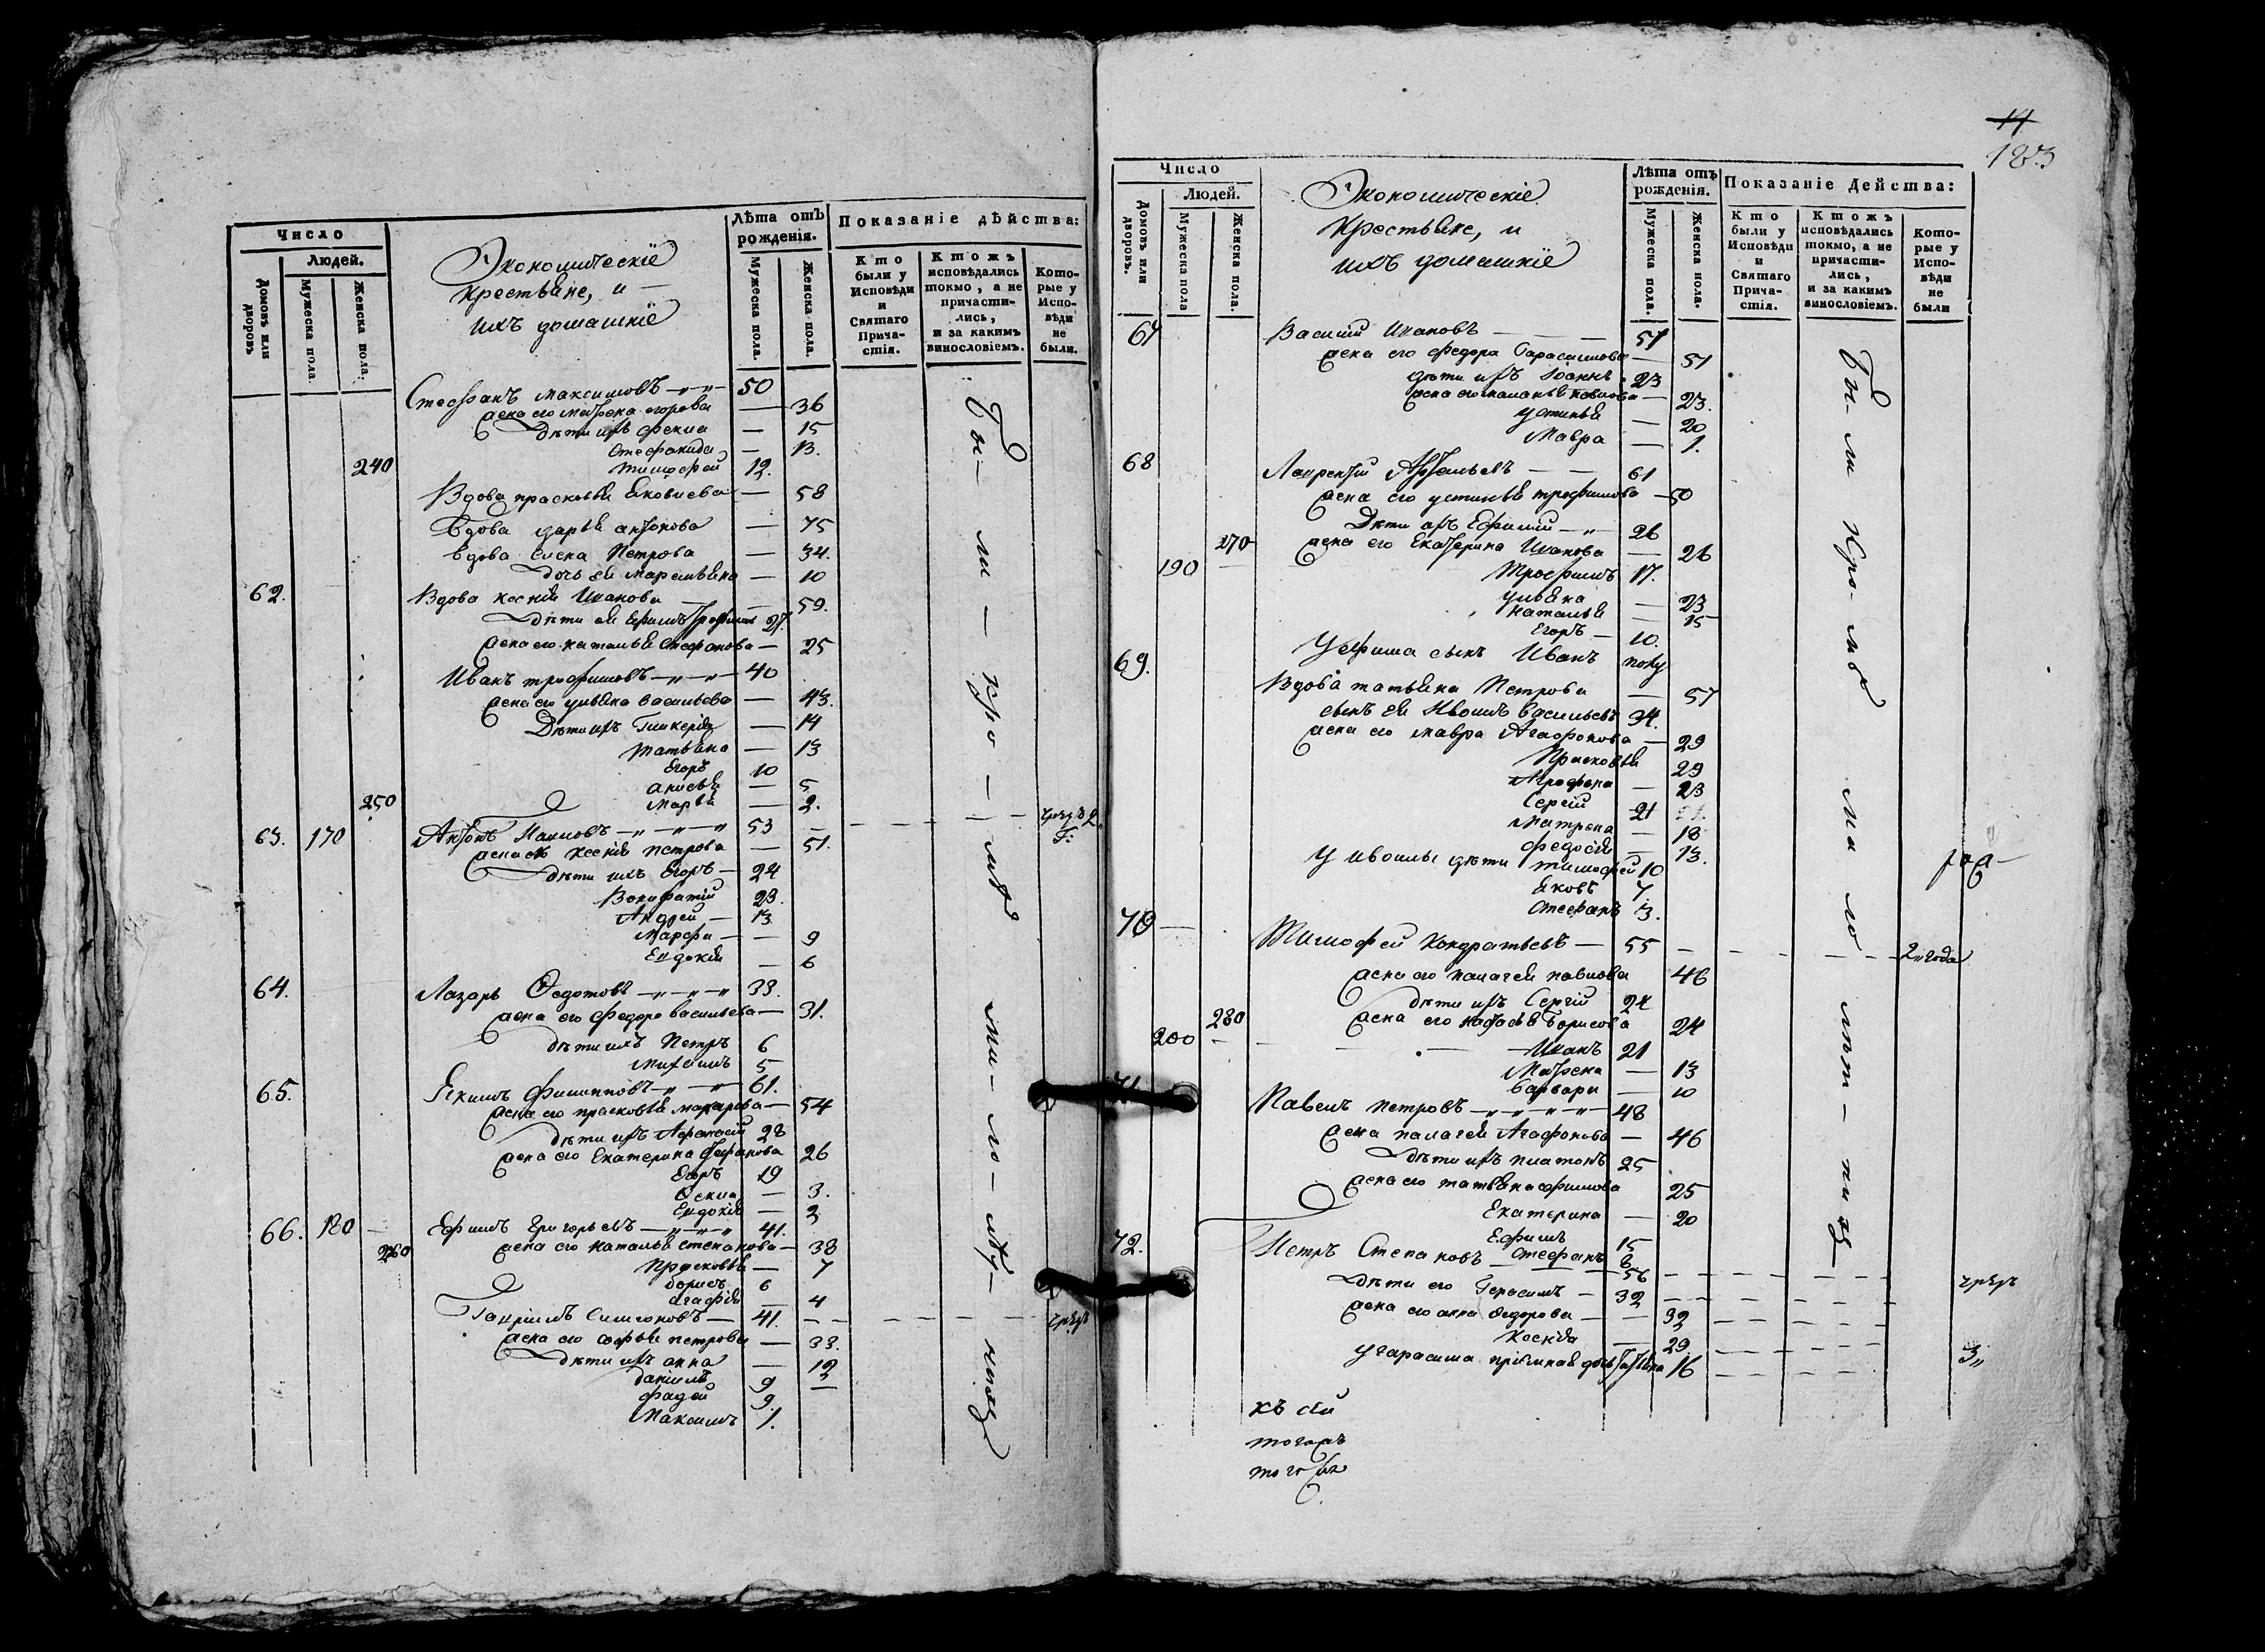 Число
Людей.
Домовъ или дворовъ
Мужеска пола.
Женска пола.
Экономическіе
крестьяне, и
ихъ домашніе
Лѣта отъ рожденія.
Мужеска пола.
Женска пола.
Показаніе дѣйства:
Кто были у Исповѣди и Святаго Причастія.
Ктожъ исповѣдались токмо, а не причастились, и за какимъ винословіемъ.
Которые у Исповѣди не были.
Стефанъ Максимовъ 50
жена его Матрена Егорова — 36
дѣти ихъ Фекла — 15
Стефанида — 13.
240 Тимофей 12.
Вдова Прасковья Яковлева — 58
Вдова Дарья Антонова — 75
Вдова Елена Петрова — 34.
дочь ея Маремьяна — 10
62. Вдова Ксенія Иванова — 59.
дѣти ея Ефимъ Трофимовъ 27.
жена его Наталья Стефанова — 25
Иванъ Трофимовъ 40
жена его Ульяна Васильева — 43.
Дѣти ихъ Гликерія — 14
Татьяна — 13
Егоръ 10
Анисья — 5
250 Марья — 2.
63. 170 Антонъ 53
жена его Ксенія Петрова — 51.
дѣти ихъ Егоръ 24
Вонифатій 23.
Андрей 13
Марфа — 9
Евдокія — 6
64. Лазарь Ѳедотовъ 33.
жена его Федора Васильева — 31.
дѣти ихъ Петръ 6
Михаилъ 5
65. Екимъ Филипповъ 61.
жена его Прасковья Макарова — 54
дѣти ихъ Афанасій 28
жена его Екатерина Стефанова 26
Егоръ 19
Ѳекла — 3.
Евдокія — 2
66. 180 Ефимъ Григорьевъ 41.
260 жена его Наталья Степанова — 38
Прасковья — 7
Борисъ 6
Агафія — 4
Гавріилъ Симеоновъ — 41.
жена его Софья Петрова — 33.
дѣти ихъ Анна — 12
Даніилъ 9
Фадей 9.
Максимъ 1.
14
183
Число
Людей.
Домовъ или дворовъ.
Мужеска пола
Женска пола.
Экономическіе
Крестьяне, и
ихъ домашніе
Лѣта отъ рожденія.
Мужеска пола.
Женска пола.
Показаніе Действа:
Кто были у Исповѣди и Святаго Причастія.
Ктожъ исповѣдались токмо, а не причастились, и за какимъ винословіемъ.
Которые у Исповѣди не были
67 Василій Ивановъ — 57
жена его Федора Гарасимова — 57
дѣти ихъ Іоаннъ 23
жена его Маланья Павлова — 23.
Устинья — 20
Мавра — 1.
68 Лаврентій 61
жена его Устинья Трофимова — 50
Дѣти ихъ Ефимій 26
270 жена его Екатерина Иванова — 26
190 Трофимъ 17.
Ульяна — 23
Наталья — 15
Егоръ — 10.
У Ефима сынъ Иванъ полу
69. Вдова Татьяна Петрова — 57
сынъ ея Васильевъ 34.
жена его Мавра Агафонова — 29
Прасковья 29
Агрофена — 23
Сергій 21
Матрена — 18
Федосія — 13.
дѣти Тимофей 10
Яковъ 7
Стефанъ 3.
70 Тимофей Кондратьевъ — 55 2 года
жена его Палагея Павлова 46
дѣти ихъ Сергій 24
280 жена его Борисова 24
200 Иванъ 21
Матрена — 13
Варвара — 10
71 Павелъ Петровъ 48
жена Палагея Агафонова — 46
дѣти ихъ Платонъ 25
жена его Татьяна Ефимова 25
Екатерина — 20
Ефимъ 15
Стефанъ 6
72. Петръ Степановъ 56
дѣти его Герасимъ — 32
жена его Анна Ѳедорова — 32
Ксенія — 29
у Гарасима пріемная дочь Татьяна 16 3
къ сей